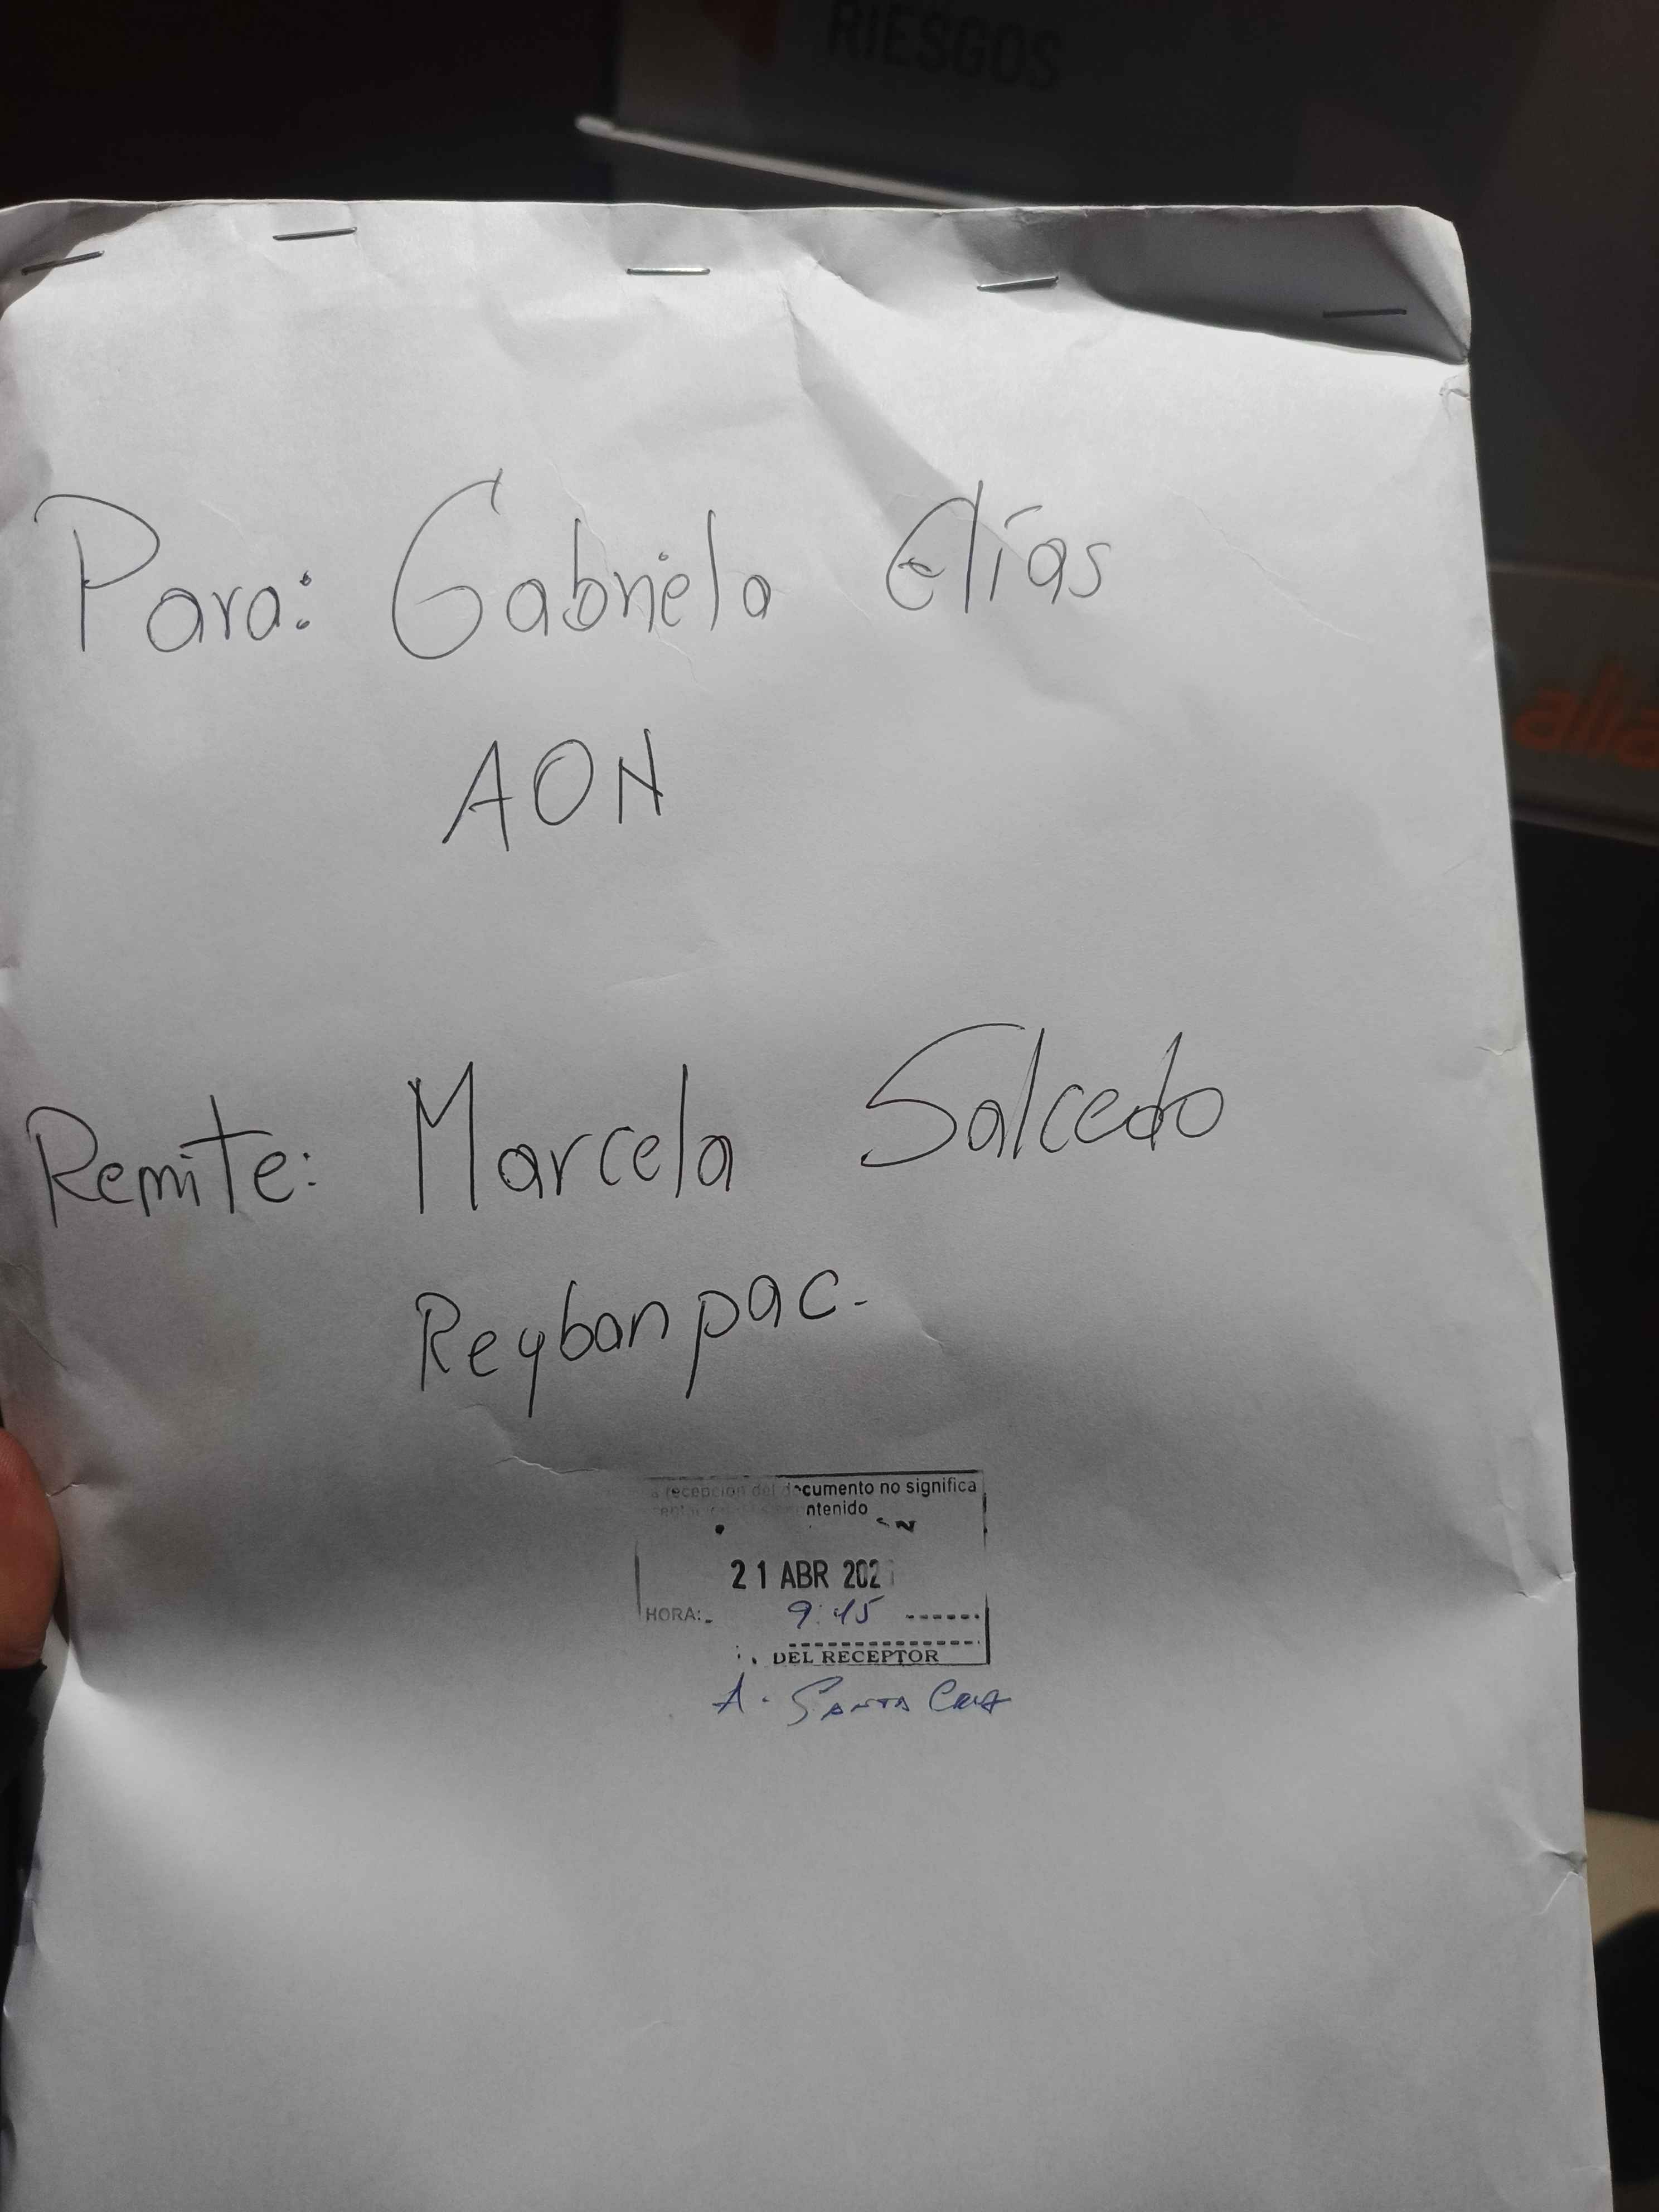 RIESGOS
Para: Gabriela Elías
AON
alia
Remite: Marcela Salcedo
Reybanpac.
recepcion del documento no significa
ntenido
21 ABR 202
HORA: 9:45
DEL RECEPTOR
A. SANTA CRUZ